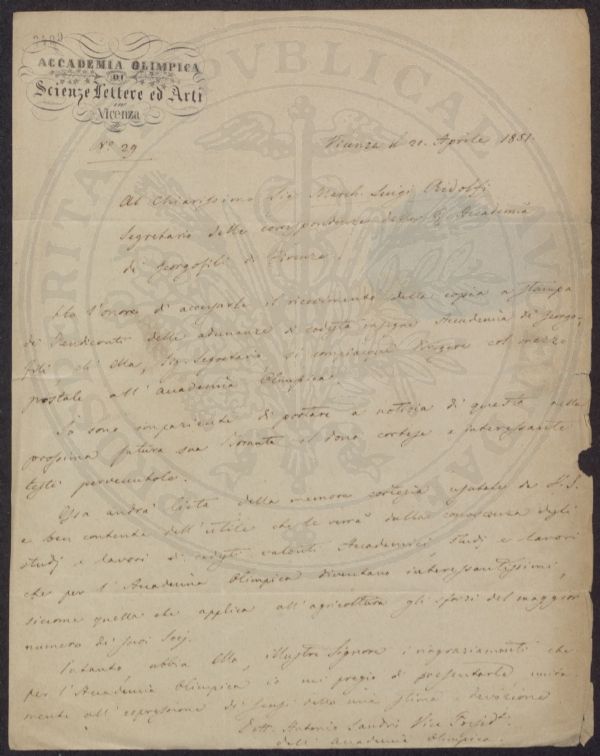 ACCADEMIA OLIMPICA
DI
Scienze Lettere ed Arti
in
Vicenza
N.º 29
Vicenza li 21. Aprile 1851.
Al Chiarissimo Sig. March. Luigi Ridolfi
Segretario delle corrispondenze Accademia
di Georgofili di Firenze.
Ho l'onore di accusarle il ricevimento della copia a stampa
di Rendiconti delle adunanze di codesta insigne Accademia di Georgo-
fili ch'Ella, Sig. Segretario si compiacque porgere col mezzo
postale all'Accademia Olimpica.
Io sono impaziente di portare a notizia di questa nella
prossima futura sua tornata il dono cortese e interessante
testè pervenutole.
Essa andrà lieta della cortesia usatale da S. S.
e ben contenta dell'utile che le verrà dalla conoscenza degli
studj e lavori di codesti valenti Accademici studj e lavori
che per l'Accademia Olimpica diventano interessantissimi,
siccome quella che applica all'agricoltura gli sforzi del maggior
numero di suoi Socj.
Intanto abbia Ella, illustre Signore i ringraziamenti che
per l'Accademia Olimpica io mi pregio di presentarle unita-
mente all'espressione di sensi della mia stima e devozione
Dott. Antonio Sandri Vice Presid.
dell'Accademia Olimpica.